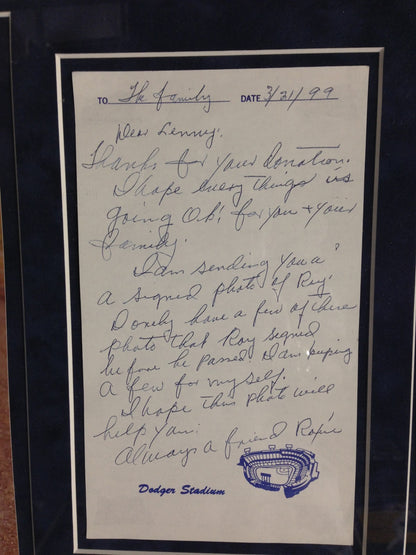 TO The family DATE 3/21/99
Dear Lenny:
Thanks for your donation.
I hope everythings is
going O.k! for you + your
family.
I am sending you a
a signed photo of Roy.
I only have a few of these
photo that Roy signed
before he passed I am keeping
a few for my self.
I hope this photo will
help you.
Always a friend Roxie
Dodger Stadium